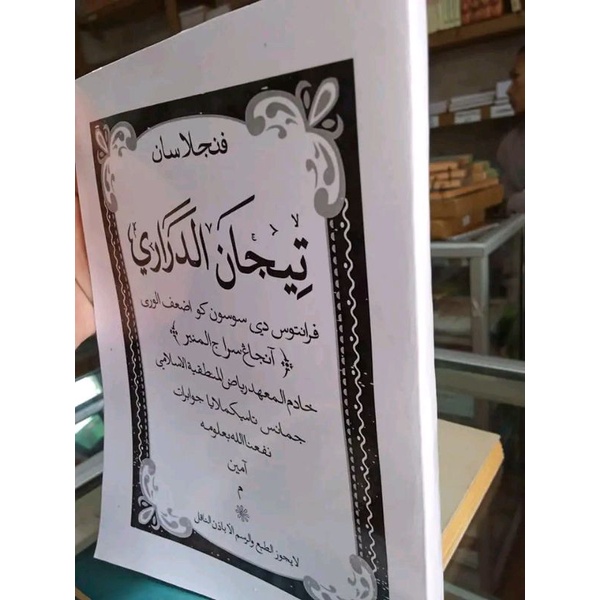 فنجلاسان
تِيْجَانَ الدَرَارِي
فرانتوس دي سوسون كو اضعف الورى
﴿ آنجاڠ سراج المنير ﴾
خادم المعهد رياض المنطقية الاسلامي
جمانس تاسيكملايا جوابارات
نفعنا الله بعلومه
آمين
م
لا يجوز الطبع والرسم الا باذن الناقل